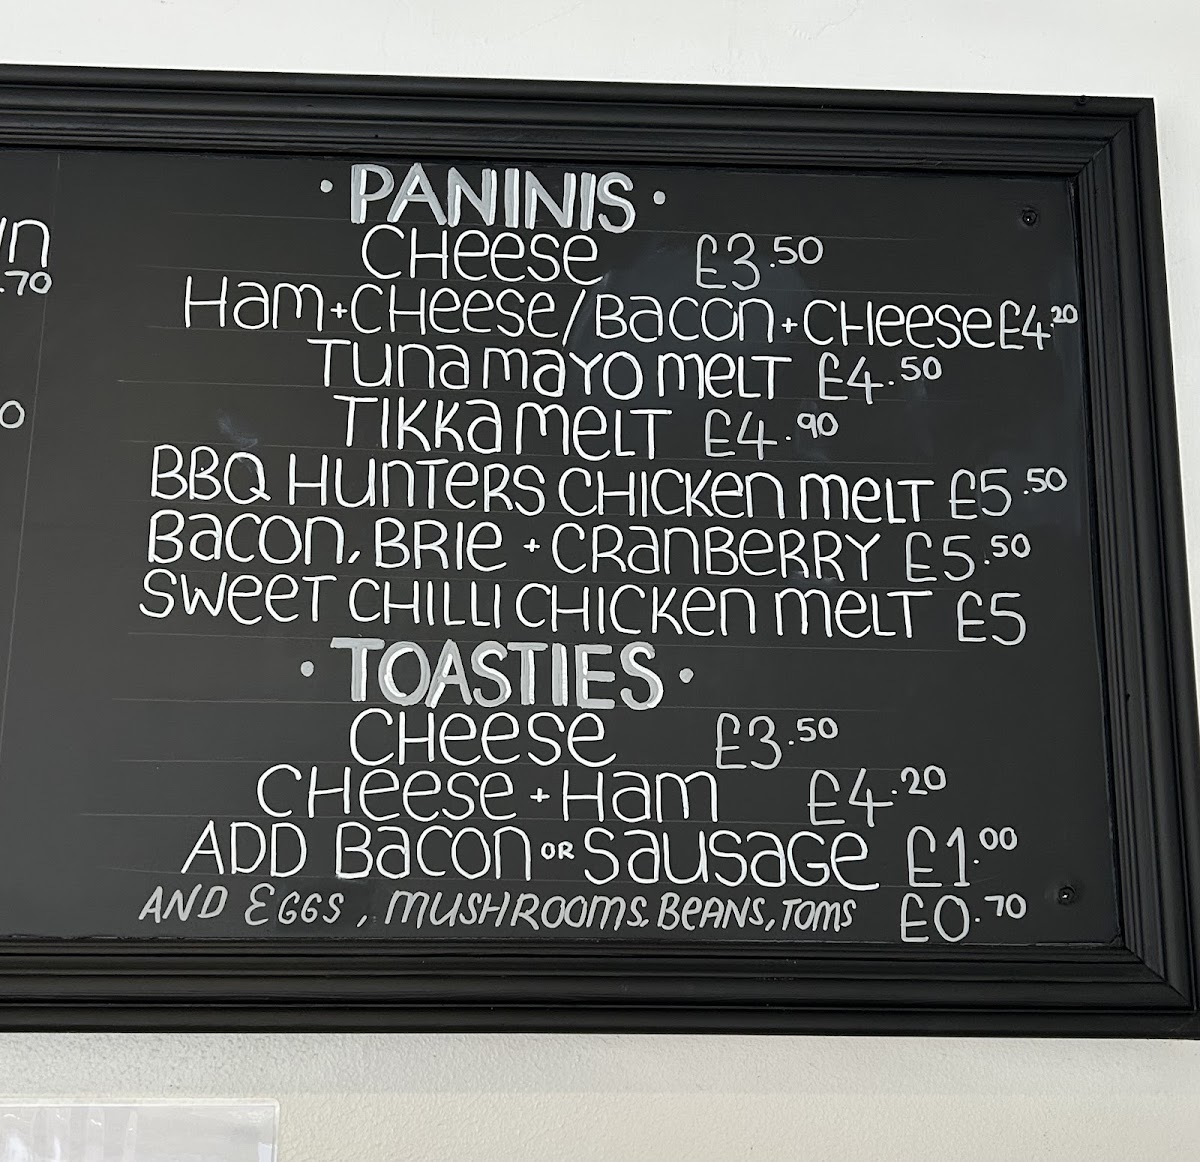 · PANINIS ·
CHeese £3.50
Ham+CHeese/Bacon+CHeese £4.20
Tuna mayo melt £4.50
Tikka melt £4.90
BBQ Hunters Chicken melt £5.50
Bacon, Brie + Cranberry £5.50
Sweet Chilli Chicken melt £5
· TOASTIES ·
CHeese £3.50
CHeese + Ham £4.20
ADD Bacon or Sausage £1.00
AND EGGS, MUSHROOMS, BEANS, TOMS £0.70
.70